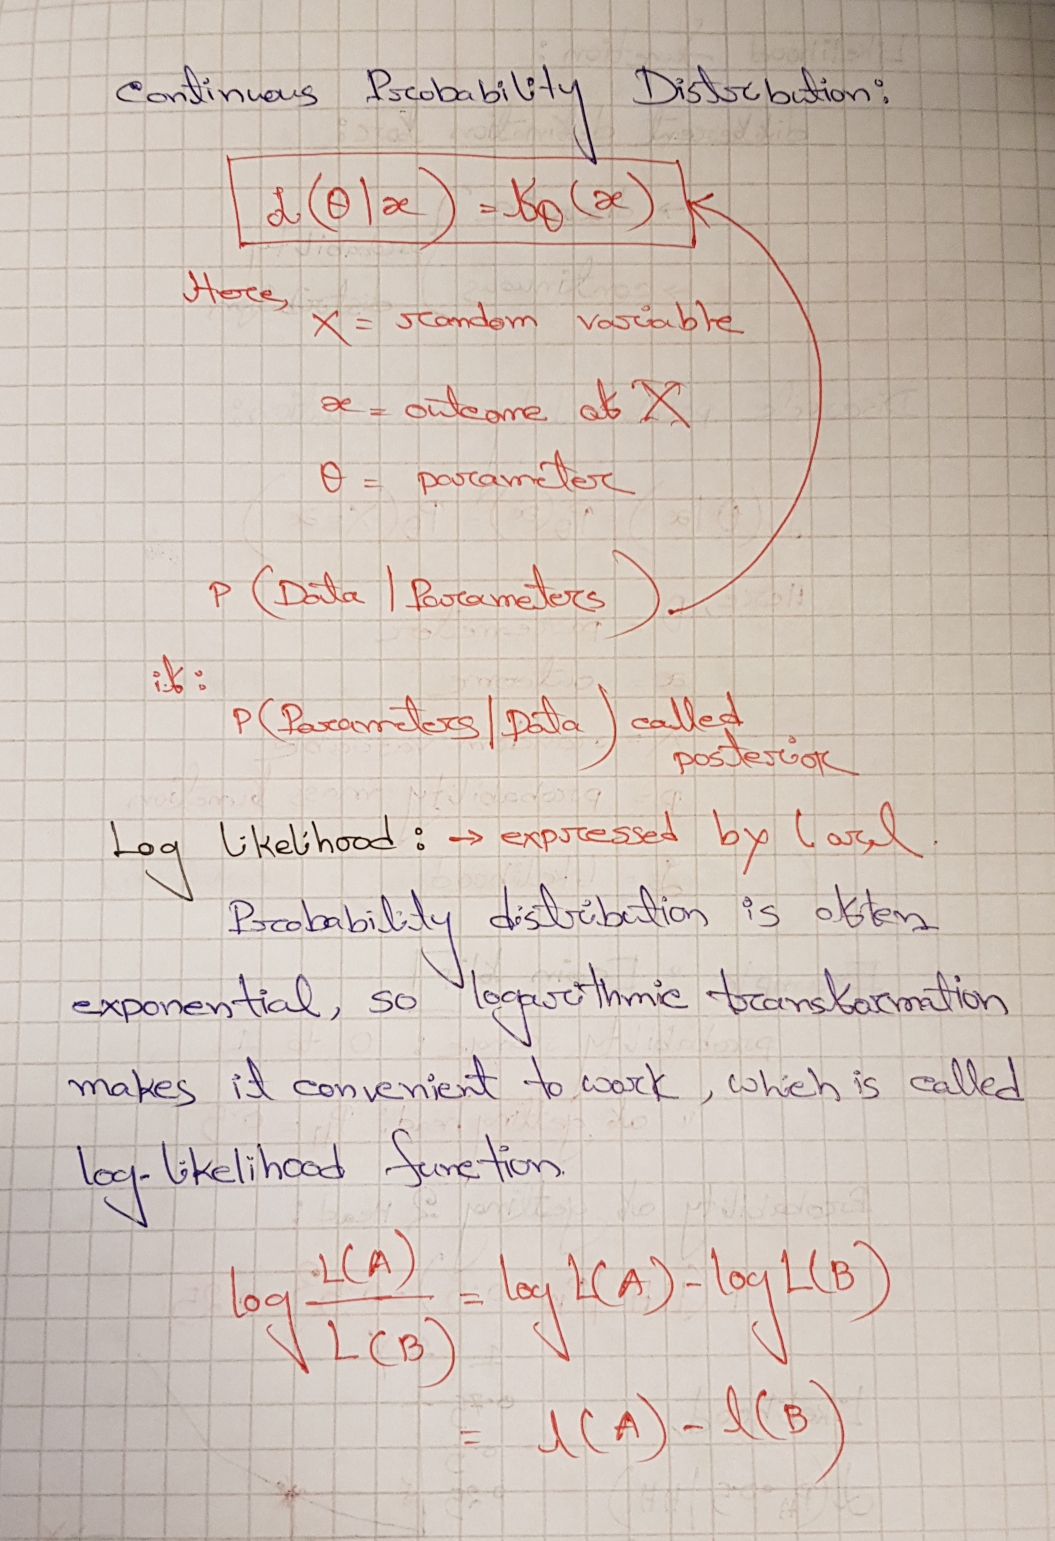 Continuous Probability Distrbution:
L(θ|x) = fθ(x)
Here,
X = random variable
x = outcome of X
θ = parameter
P (Data | Parameters)
if:
P(Parameters | Data) called
posterior
Log likelihood: → expressed by l and
Probability distribution is often
exponential, so logarithmic transformation
makes it convenient to work, which is called
log-likelihood function.
log L(A)/L(B) = log L(A) - log L(B)
= l(A) - l(B)